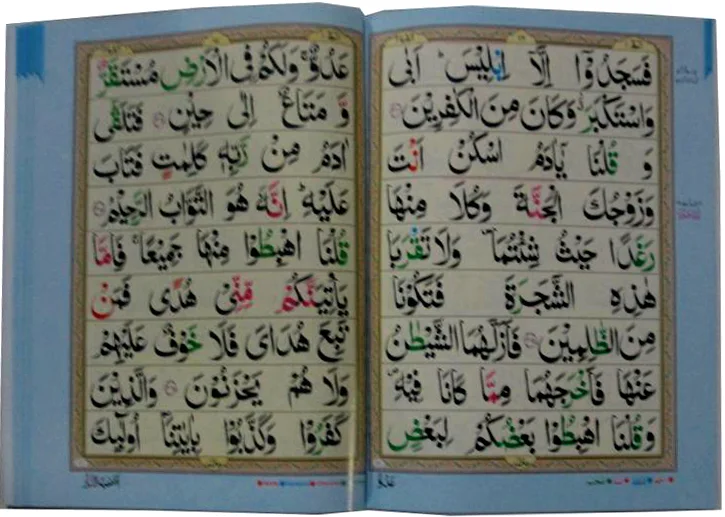 فَسَجَدُوْۤا اِلَّاۤ اِبْلِیْسَؕ اَبٰی
وَاسْتَكْبَرَ٘ۗ وَكَانَ مِنَ الْكٰفِرِیْنَ
وَ قُلْنَا یٰۤاٰدَمُ اسْكُنْ اَنْتَ
وَزَوْجُكَ الْجَنَّةَ وَكُلَا مِنْهَا
رَغَدًا حَیْثُ شِئْتُمَا۪ وَلَا تَقْرَبَا
هٰذِهِ الشَّجَرَةَ فَتَكُوْنَا
مِنَ الظّٰلِمِیْنَ فَاَزَلَّهُمَا الشَّیْطٰنُ
عَنْهَا فَاَخْرَجَهُمَا مِمَّا كَانَا فِیْهِ۪
وَقُلْنَا اهْبِطُوْا بَعْضُكُمْ لِبَعْضٍ
عَدُوٌّۚ وَلَكُمْ فِی الْاَرْضِ مُسْتَقَرٌّ
وَّ مَتَاعٌ اِلٰی حِیْنٍ فَتَلَقّٰۤی
اٰدَمُ مِنْ رَّبِّهٖ كَلِمٰتٍ فَتَابَ
عَلَیْهِؕ اِنَّهٗ هُوَ التَّوَّابُ الرَّحِیْمُ
قُلْنَا اهْبِطُوْا مِنْهَا جَمِیْعًاۚ فَاِمَّا
یَاْتِیَنَّكُمْ مِّنِّیْ هُدًی فَمَنْ
تَبِعَ هُدَایَ فَلَا خَوْفٌ عَلَیْهِمْ
وَلَا هُمْ یَحْزَنُوْنَ وَالَّذِیْنَ
كَفَرُوْا وَكَذَّبُوْا بِاٰیٰتِنَاۤ اُولٰٓىِٕكَ